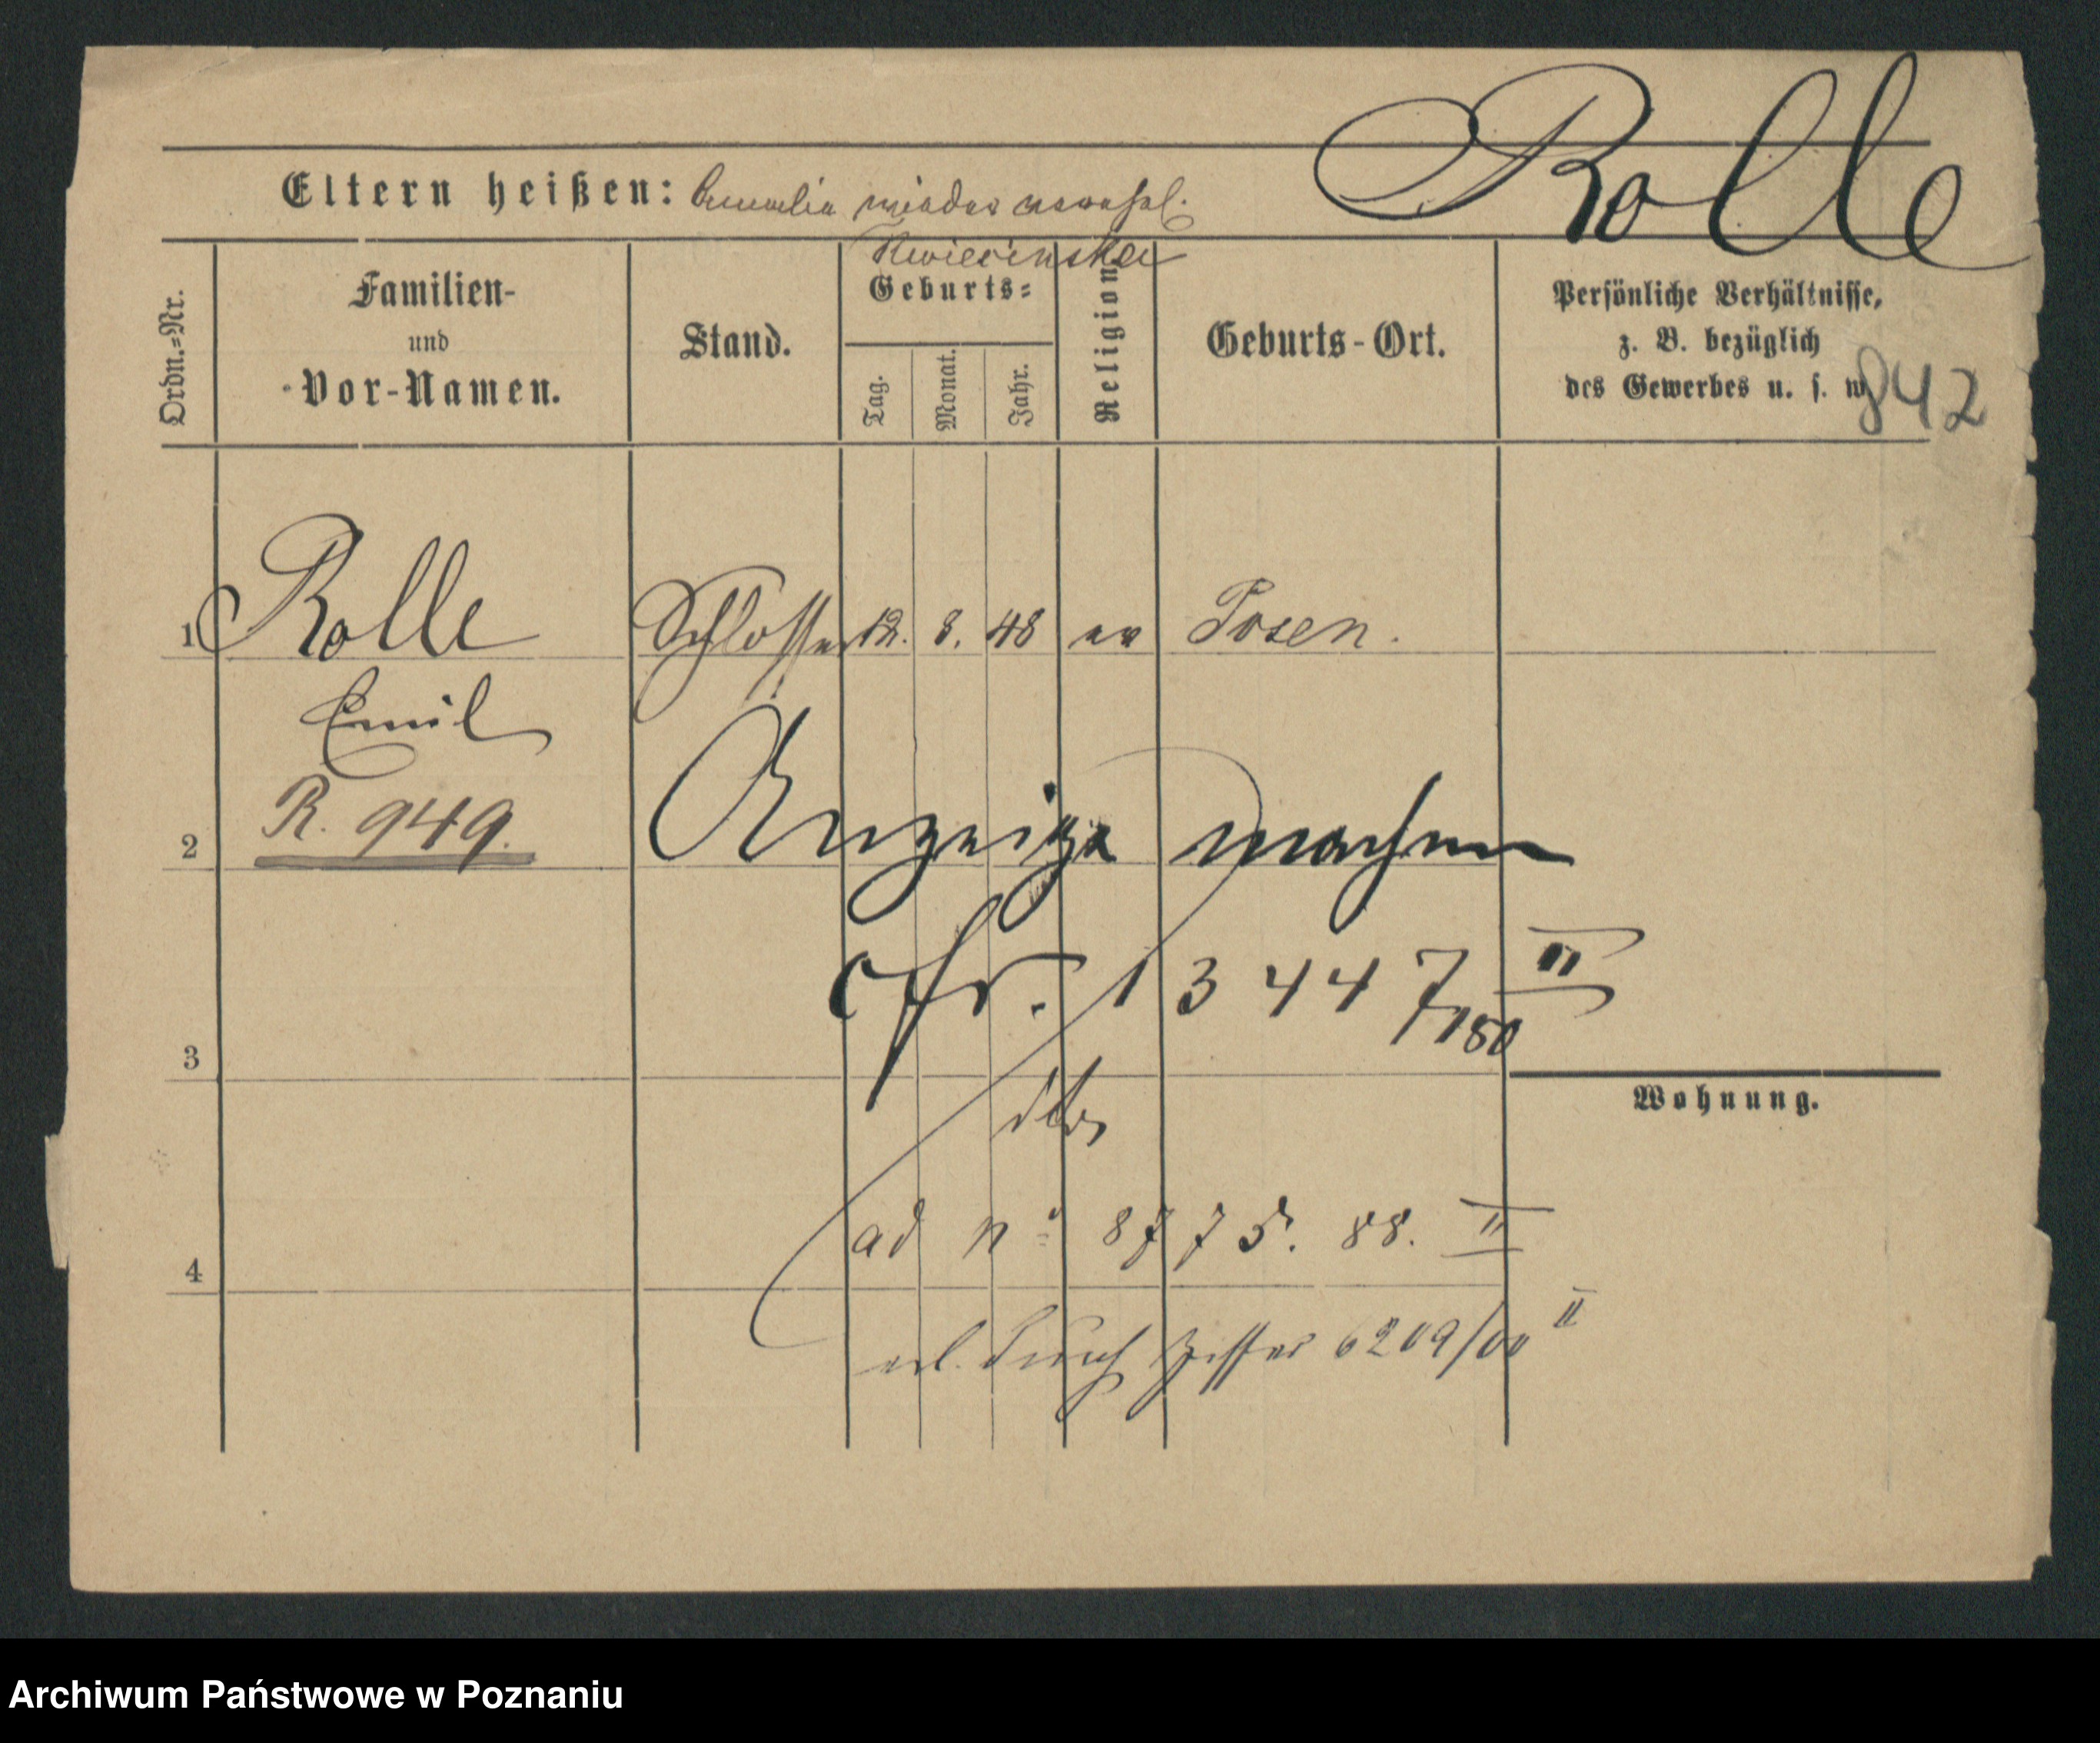 Rolle
Eltern heißen: Amalia wieder vereheł.
Kwiecinska
Ordn.=Nr.
Familien-
und
Vor-Namen.
Stand.
Geburts=
Tag.
Monat.
Jahr.
Religion
Geburts-Ort.
Persönliche Verhältnisse,
z. B. bezüglich
des Gewerbes u. s. w.
842
1 Rolle Schlosser 12. 8. 48 ev Posen.
Emil
2 R. 949. Anzeige machen
cfr. 13447/80 II
3
Wohnung.
ad no 8775. 88. II
4
erl. durch Ziffer 6209/00 II
Archiwum Państwowe w Poznaniu